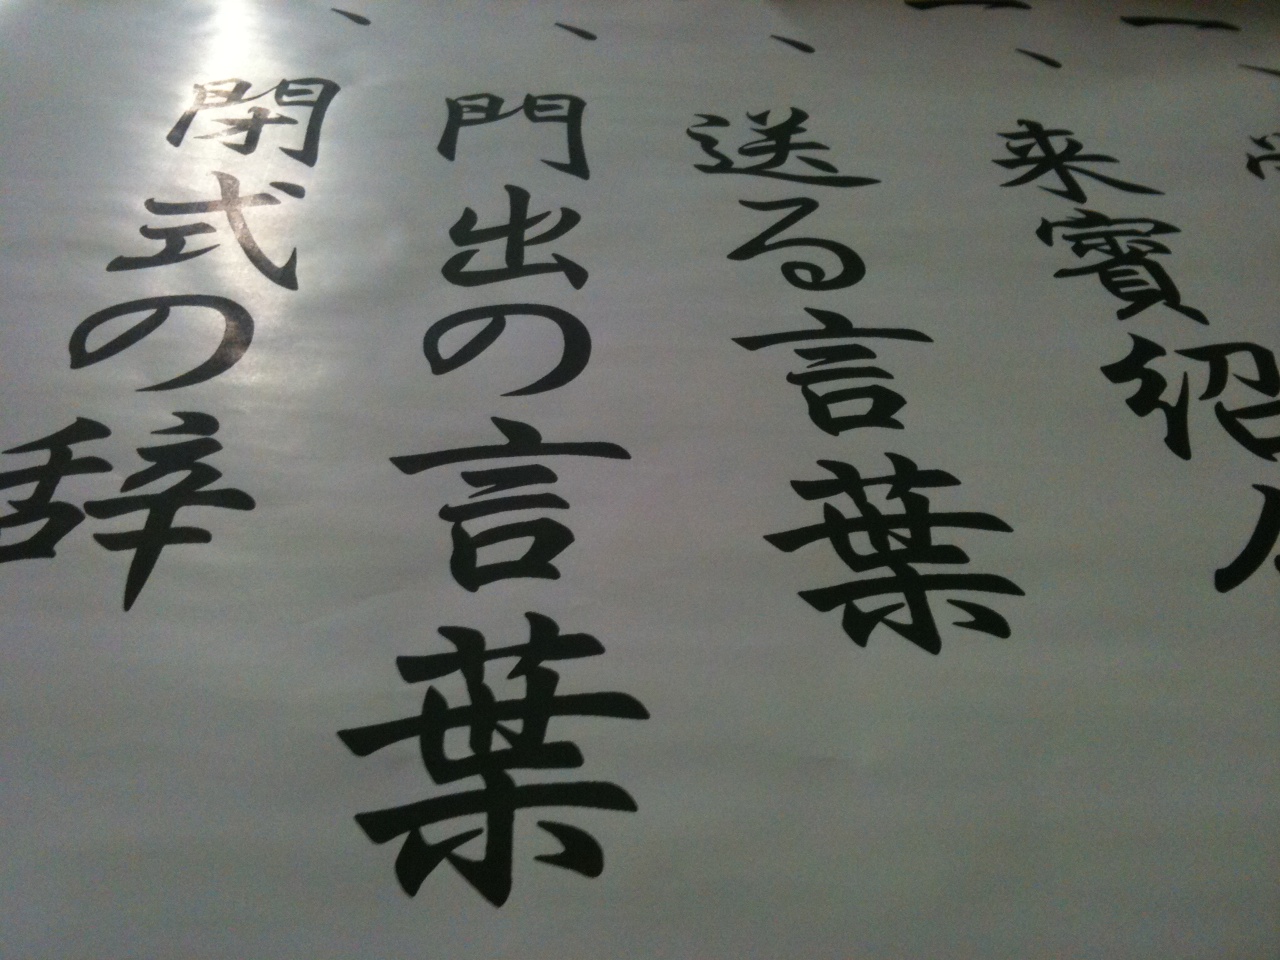 一、来賓紹
、送る言葉
、門出の言葉
、閉式の辞